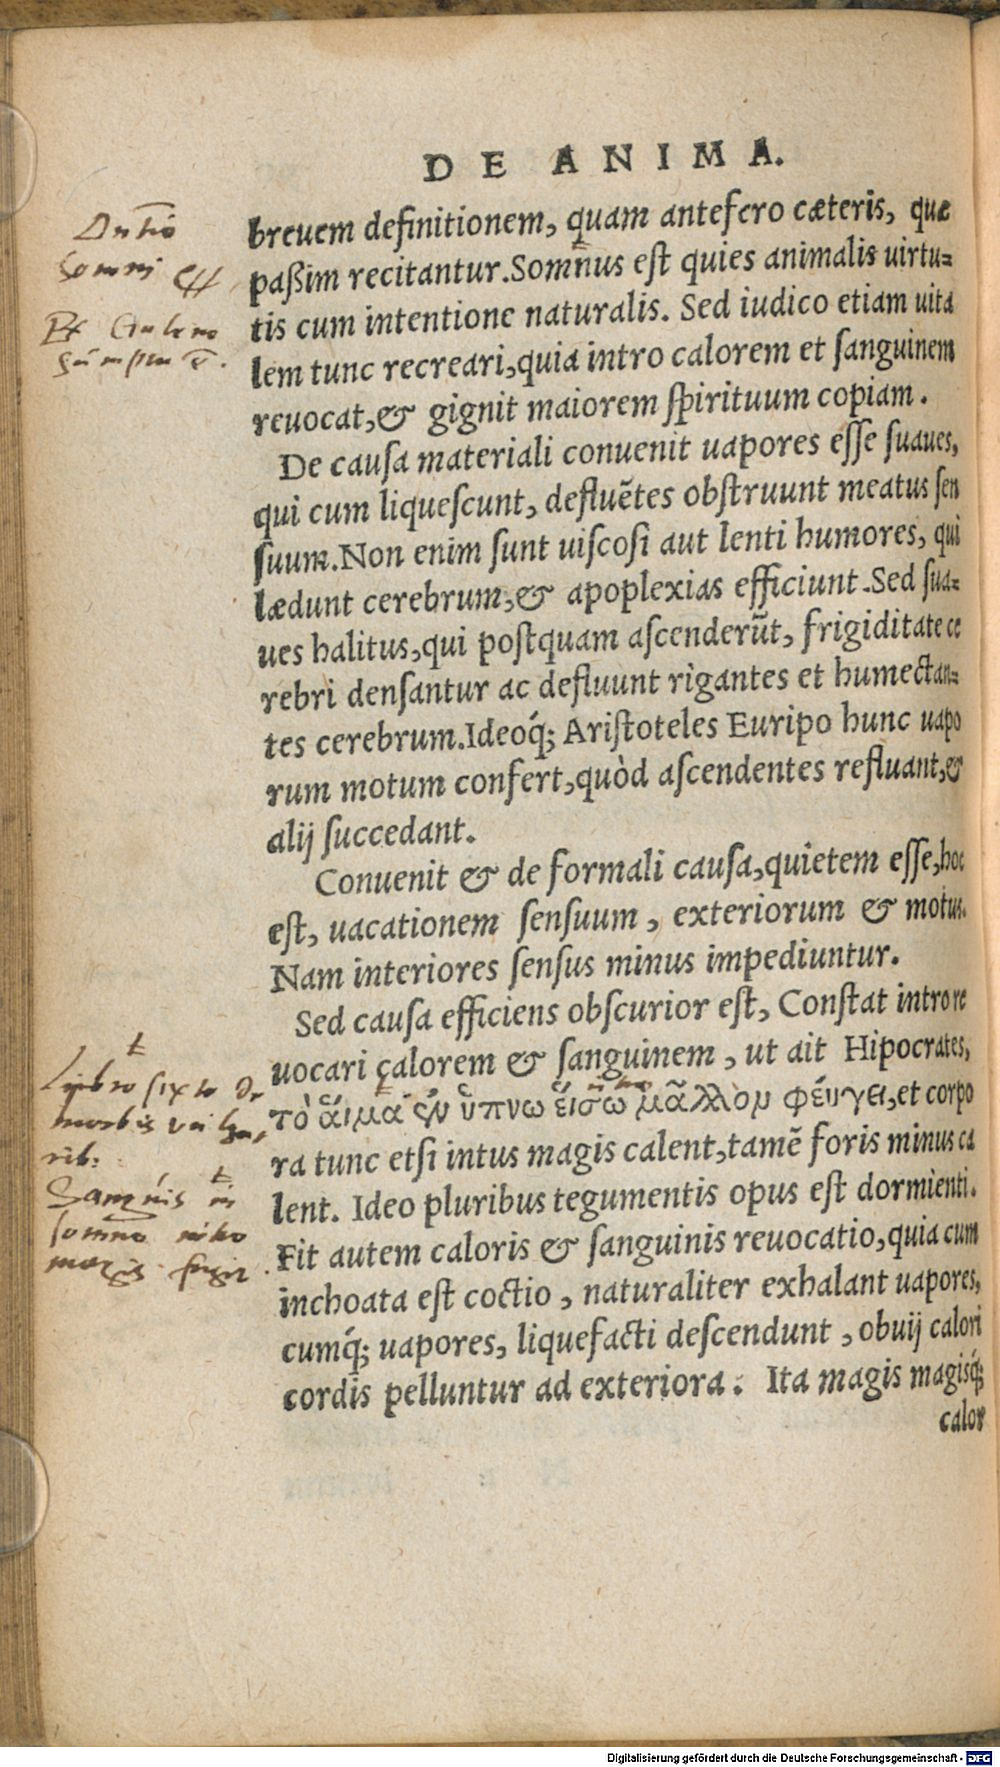 DE ANIMA.
breuem definitionem, quam antefero cæteris, quæ
paßim recitantur. Somnus eſt quies animalis uirtu=
tis cum intentione naturalis. Sed iudico etiam uita
lem tunc recreari, quia intro calorem et ſanguinem
reuocat, & gignit maiorem ſpirituum copiam.
De cauſa materiali conuenit uapores eſſe ſuaues,
qui cum liqueſcunt, defluẽtes obſtruunt meatus ſen
ſuum. Non enim ſunt uiſcoſi aut lenti humores, qui
lædunt cerebrum, & apoplexias efficiunt. Sed ſua=
ues halitus, qui poſtquam aſcenderũt, frigiditate ce
rebri denſantur ac defluunt rigantes et humectan=
tes cerebrum. Ideoq́; Ariſtoteles Euripo hunc uapo
rum motum confert, quòd aſcendentes refluant, &
alij ſuccedant.
Conuenit & de formali cauſa, quietem eſſe, hoc
eſt, uacationem ſenſuum, exteriorum & motus.
Nam interiores ſenſus minus impediuntur.
Sed cauſa efficiens obſcurior eſt, Conſtat intro re
uocari calorem & ſanguinem, ut ait Hipocrates,
τὸ ἅιμα ἐν ὕπνω ἔισω μᾶλλον φέυγει, et corpo
ra tunc etſi intus magis calent, tamẽ foris minus ca
lent. Ideo pluribus tegumentis opus eſt dormienti.
Fit autem caloris & ſanguinis reuocatio, quia cum
inchoata eſt coctio, naturaliter exhalant uapores,
cumq́; uapores, liquefacti deſcendunt, obuij calori
cordis pelluntur ad exteriora. Ita magis magisq́;
calor
somni
Ex Galeno
Libro sixto de
morbis vulga
rib:
Sanguis in
somno intro
magis fugit
Digitalisierung gefördert durch die Deutsche Forschungsgemeinschaft - DFG